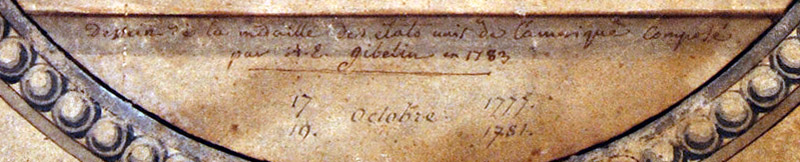 Dessein de la médaille des états unis de Lamerique Composé
par A. E. Gibelin en 1783
17 Octobre 1777.
19. 1781.